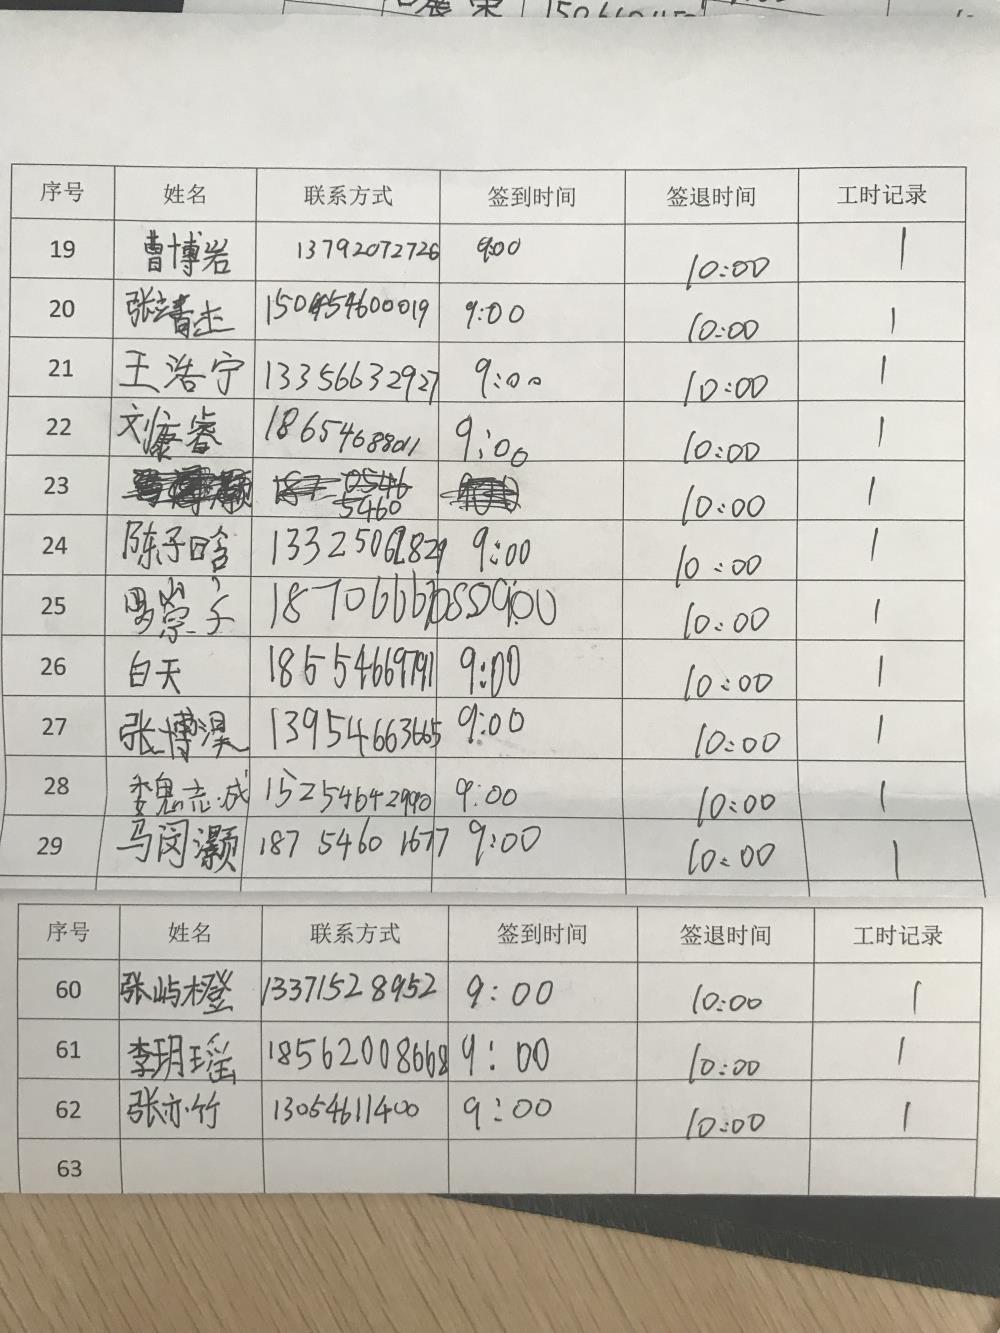 序号 姓名 联系方式 签到时间 签退时间 工时记录
19 曹博岩 13792072726 9:00 10:00 1
20 张 9:00 10:00 1
21 王浩宁 13356632927 9:00 10:00 1
22 刘康睿 18654688011 9:00 10:00 1
23 10:00 1
24 陈子晗 9:00 10:00 1
25 9:00 10:00 1
26 白天 18554669791 9:00 10:00 1
27 张博淏 13954663665 9:00 10:00 1
28 魏志成 9:00 10:00 1
29 马闵灏 187 5460 1677 9:00 10:00 1
序号 姓名 联系方式 签到时间 签退时间 工时记录
60 张屿橙 13371528952 9:00 10:00 1
61 李玥瑶 18562008668 9:00 10:00 1
62 张亦竹 13054611400 9:00 10:00 1
63